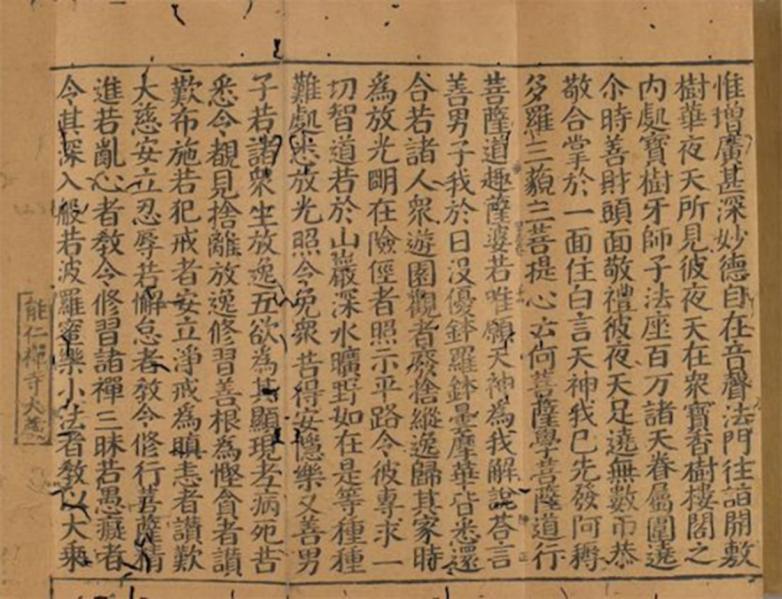 惟增廣甚深妙德自在音聲法門往詣開敷
樹華夜天所見彼夜天在衆寶香樹樓閣之
内處寶樹牙師子法座百万諸天眷屬圍遶
尒時善財頭面敬禮彼夜天足遶無數帀恭
敬合掌於一面住白言天神我已先發阿耨
多羅三藐三菩提心云何菩薩學菩薩道行
菩薩道趣薩婆若唯願天神為我解說荅言
善男子我於日没優鉢羅鉢曇摩華皆悉還
合若諸人衆遊園觀者廢捨縱逸歸其家時
為放光明在險徑者照示平路令彼專求一
切智道若於山巖深水曠野如在是等種種
難處悉放光照令免衆苦得安隱樂又善男
子若諸衆生放逸五欲為其顯現老病死苦
悉令覩見捨離放逸修習善根為慳貪者讚
歎布施若犯戒者安立淨戒為瞋恚者讚歎
大慈安立忍辱若懈怠者教令修行菩薩精
進若亂心者教令修習諸禪三昧若愚癡者
令其深入般若波羅蜜樂小法者教以大乘
能仁禪寺大藏